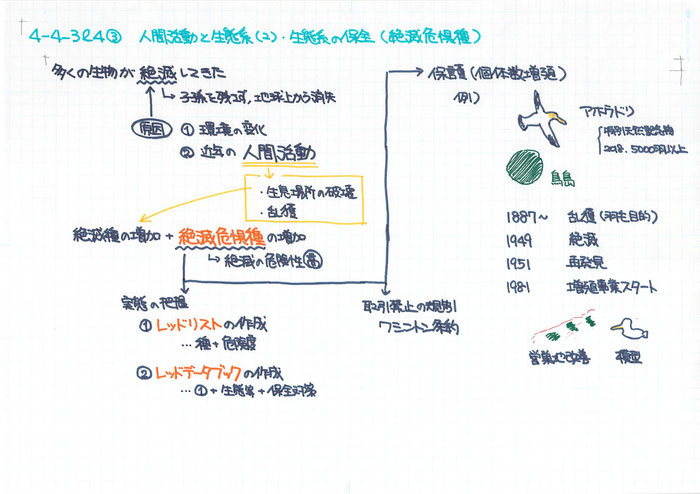 4-4-3と4③ 人間活動と生態系(2)・生態系の保全(絶滅危惧種)
多くの生物が絶滅してきた
↳ 子孫を残せず、地球上から消失
原因 ① 環境の変化
② 近年の人間活動
・生息場所の破壊
・乱獲
絶滅種の増加 + 絶滅危惧種の増加
↳ 絶滅の危険性 高
実態の把握
① レッドリストの作成
… 種+危険度
② レッドデータブックの作成
… ①+生態等+保全対策
取引禁止の規制
ワシントン条約
保護(個体数増殖)
例)
アホウドリ
特別天然記念物
2018. 5000羽以上
鳥島
1887~ 乱獲(羽毛目的)
1949 絶滅
1951 再発見
1981 増殖事業スタート
営巣地改善 模型